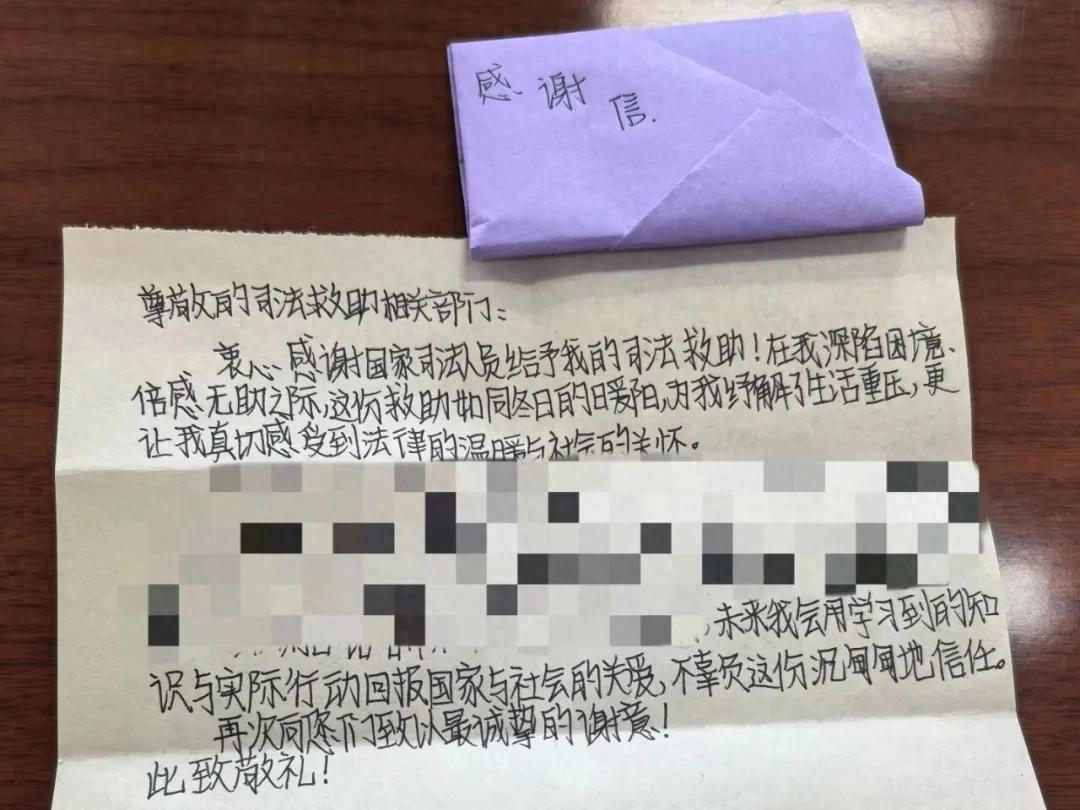 感谢信.
尊敬的司法救助相关部门:
衷心感谢国家司法人员给予我的司法救助!在我深陷困境、
倍感无助之际,这份救助如同冬日的暖阳,为我纾解了生活重压,更
让我真切感受到法律的温暖与社会的关怀。
,未来我会用学习到的知
识与实际行动回报国家与社会的关爱,不辜负这份沉甸甸地信任。
再次向您们致以最诚挚的谢意!
此致敬礼!